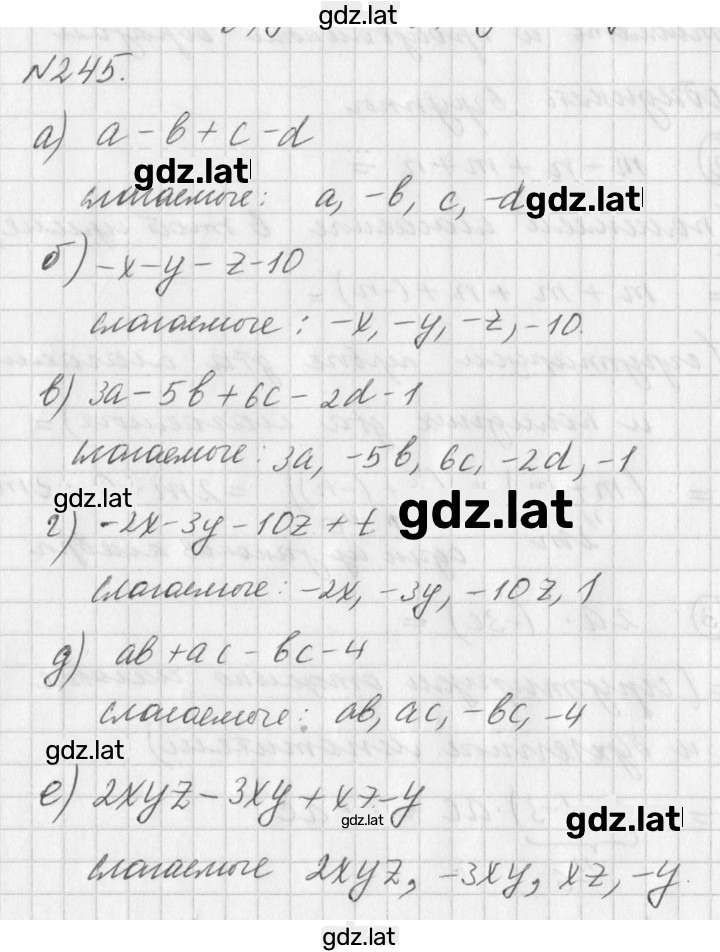 gdz.lat
N245.
а) a - b + c - d
gdz.lat
слагаемые: a, -b, c, -d gdz.lat
б) -x-y-z-10
слагаемые: -x, -y, -z, -10.
в) 3a - 5b + 6c - 2d - 1
слагаемые: 3a, -5b, 6c, -2d, -1
gdz.lat
gdz.lat
г) -2x-3y-10z+t
слагаемые: -2x, -3y, -10z, 1
д) ab+ac-bc-4
слагаемые: ab, ac, -bc, -4
gdz.lat
е) 2xyz-3xy+xz-y
gdz.lat
gdz.lat
слагаемые 2xyz, -3xy, xz, -y.
gdz.lat